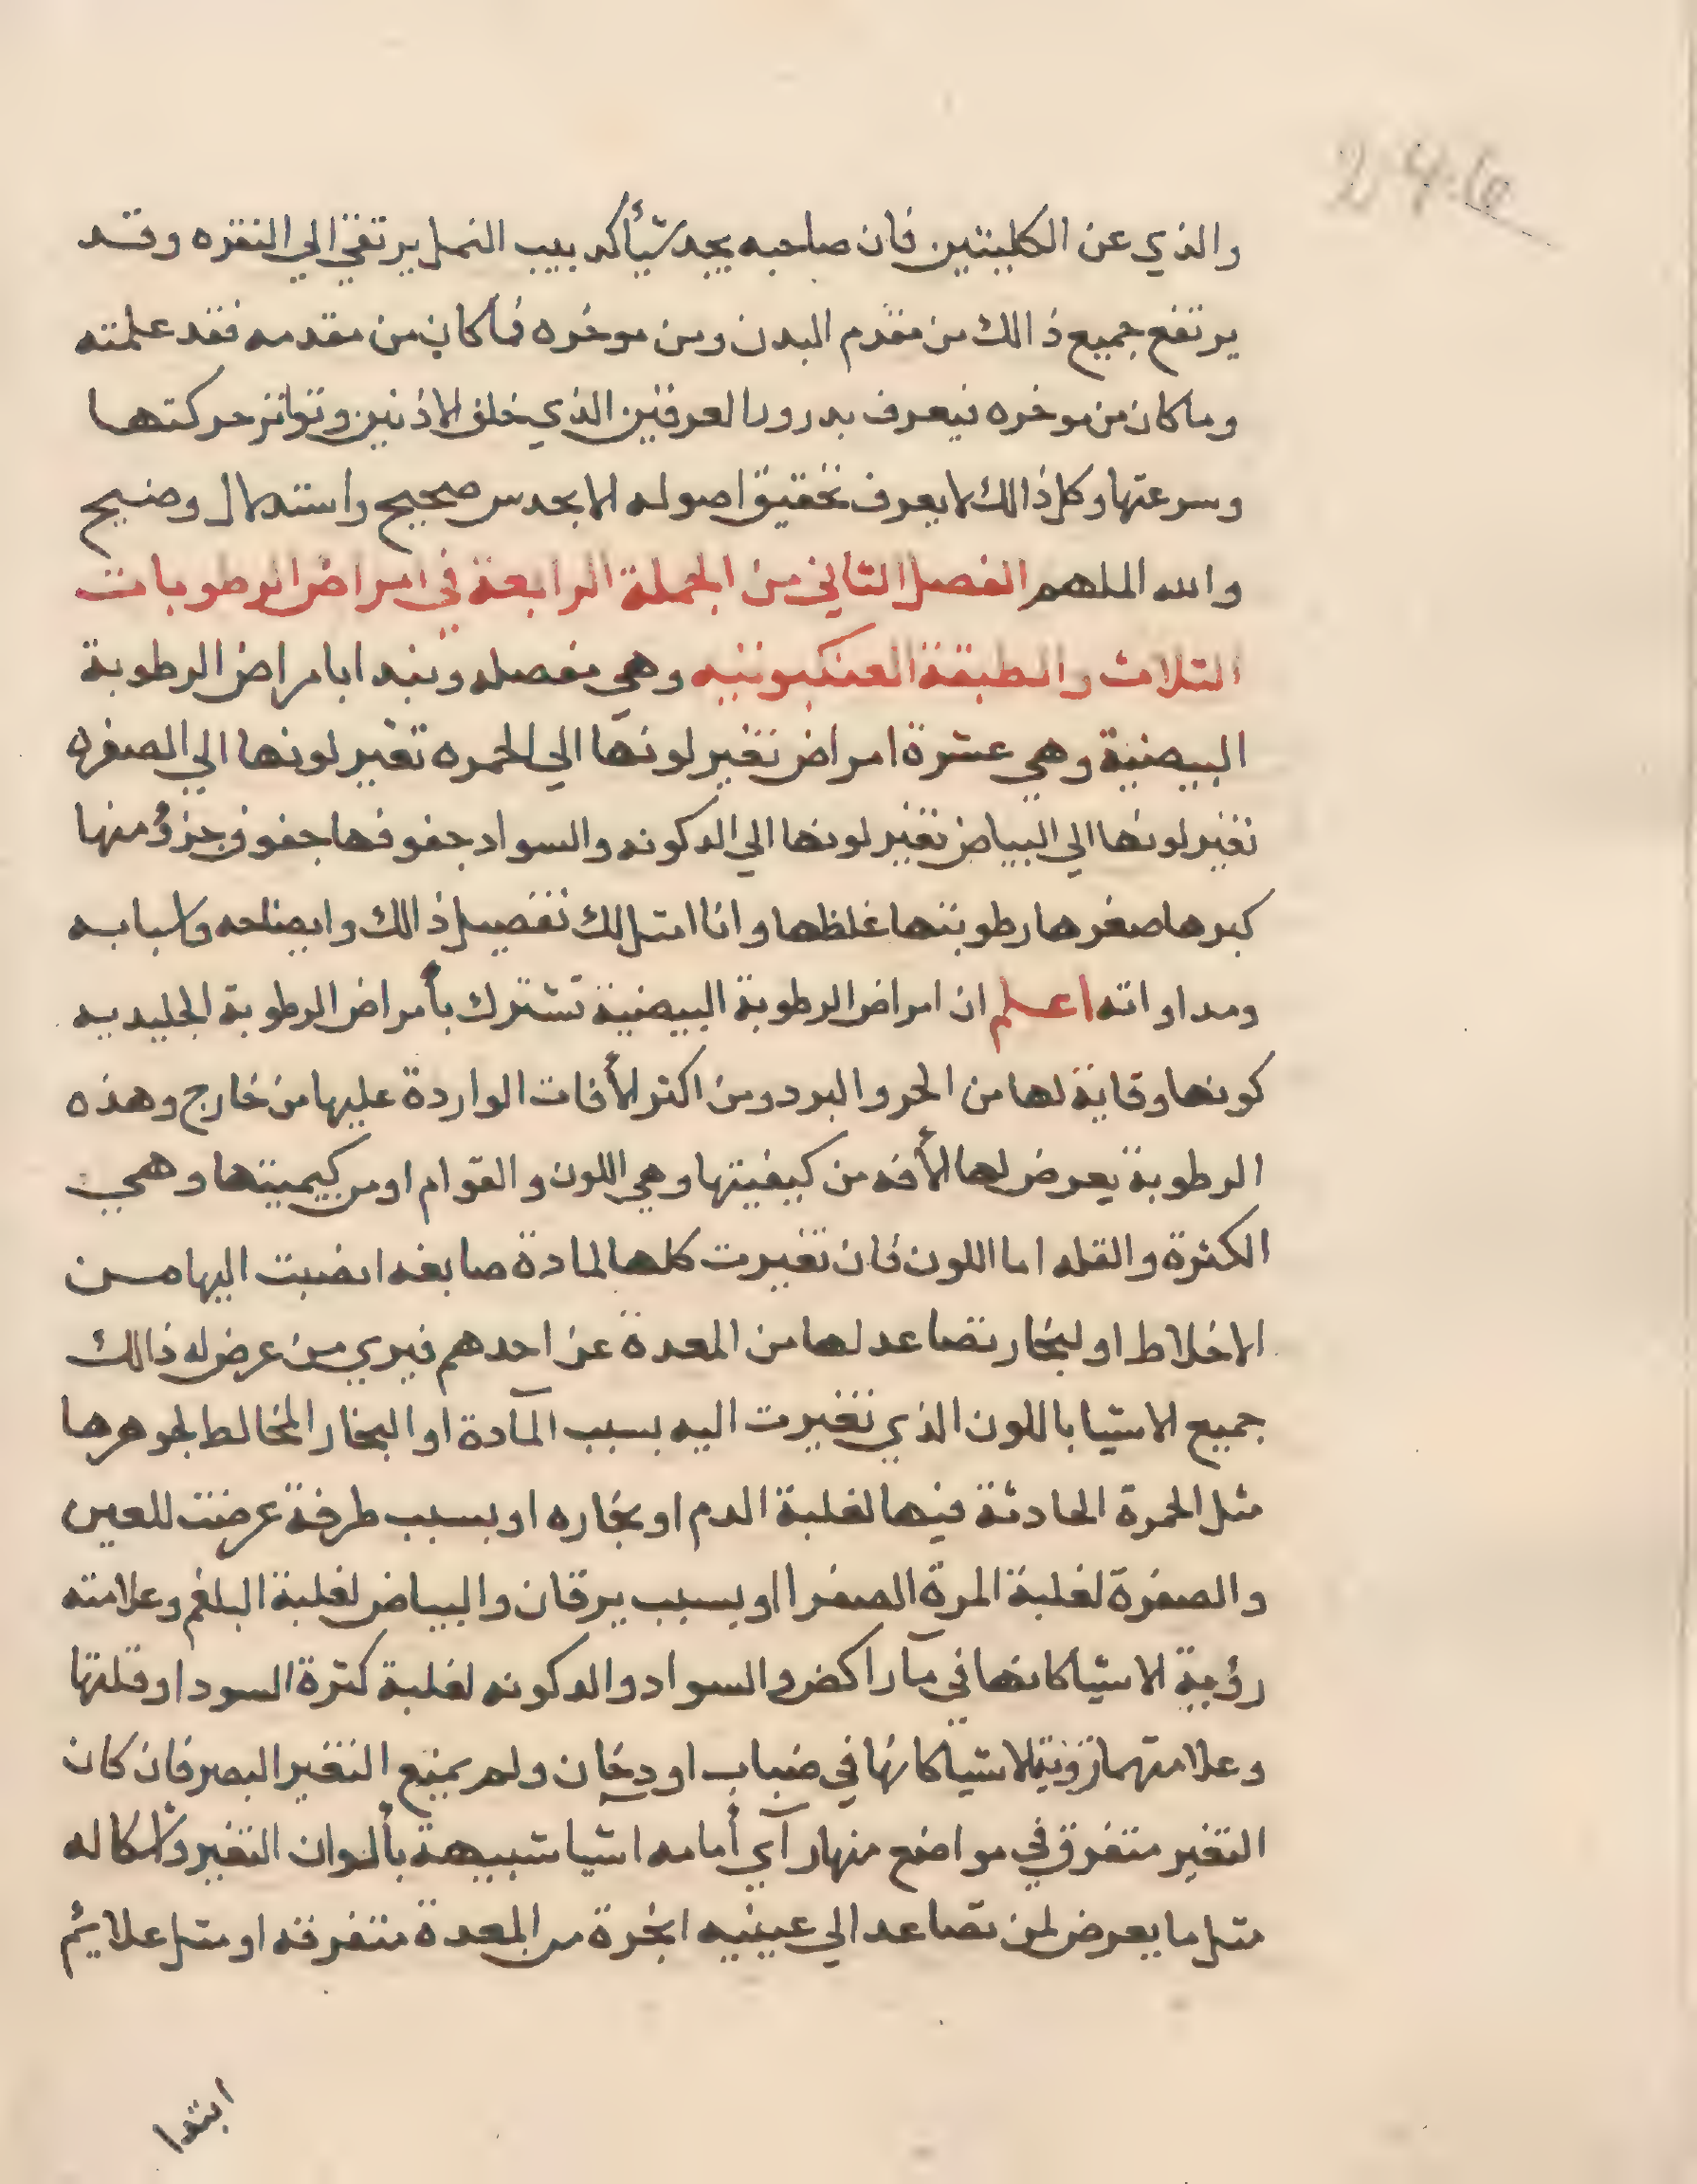 246
والذي عن الكليتين فان صاحبه يجد شيأ كدبيب النمل يرتقي الي النقره وقد
يرتفع جميع ذالك من مقدم البدن ومن موخره فما كان من مقدمه فقد علمته
وما كان من موخره فيعرف بدرور العرقين الذي خلف الاذنين وتواتر حركتها
وسرعتها وكل ذالك لا يعرف تحقيق اصوله الا بحدس صحيح واستدلال وضيح
والله الملهم الفصل الثاني من الجملة الرابعة في امراض الرطوبات
الثلاث والطبقة العنكبوتيه وهي مفصله ونبدا بامراض الرطوبة
البيضية وهي عشرة امراض تغير لونها الي الحمره تغير لونها الي الصفره
تغير لونها الي البياض تغير لونها الي الدكونه والسواد جفوفها جفوف جزؤ منها
كبرها صغرها رطوبتها غلظها وانا امثل لك تفصيل ذالك وايضاحه واسبابه
ومداواته اعلم ان امراض الرطوبة البيضية تشترك بأمراض الرطوبة الجليديه
كونها وقاية لها من الحر والبرد ومن اكثر الأفات الواردة عليها من خارج وهذه
الرطوبة يعرض لها الأفه من كيفيتها وهي اللون والقوام او من كيميتها وهي
الكثرة والقله اما اللون فان تغيرت كلها لمادة صابغه انضبت اليها من
الاخلاط او لبخار تصاعد لها من المعدة عن احدهم فيري من عرض له ذالك
جميع الاشيا باللون الذي تغيرت اليه بسبب المآدة او البخار المخالط لجوهرها
مثل الحمرة الحادثة فيها لغلبة الدم او بخاره او بسبب طرفة عرضت للعين
والصفرة لغلبة المرة الصفرا او بسبب يرقان والبياض لغلبة البلغم وعلامته
رؤية الاشيا كانها في مآ راكض والسواد والدكونه لغلبة كثرة السودا وقلتها
وعلامتهما رؤية الاشيا كانها في ضباب او دخان ولم يمنع التغير البصر فان كان
التغير متفرق في مواضع منها رآي أمامه اشيا شبيهة بألوان التغير واشكاله
مثل ما يعرض لمن تصاعد الي عينيه ابخرة من المعدة متفرقه او مثل علايم
ابتدا